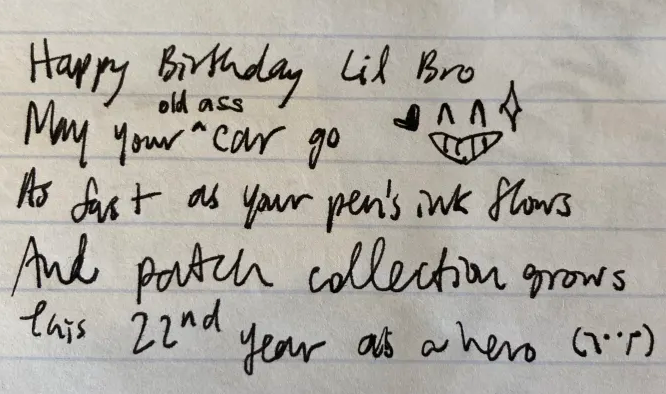 Happy Birthday Lil Bro
May your ^old ass car go
As fast as your pen's ink flows
And patch collection grows
this 22nd year as a hero